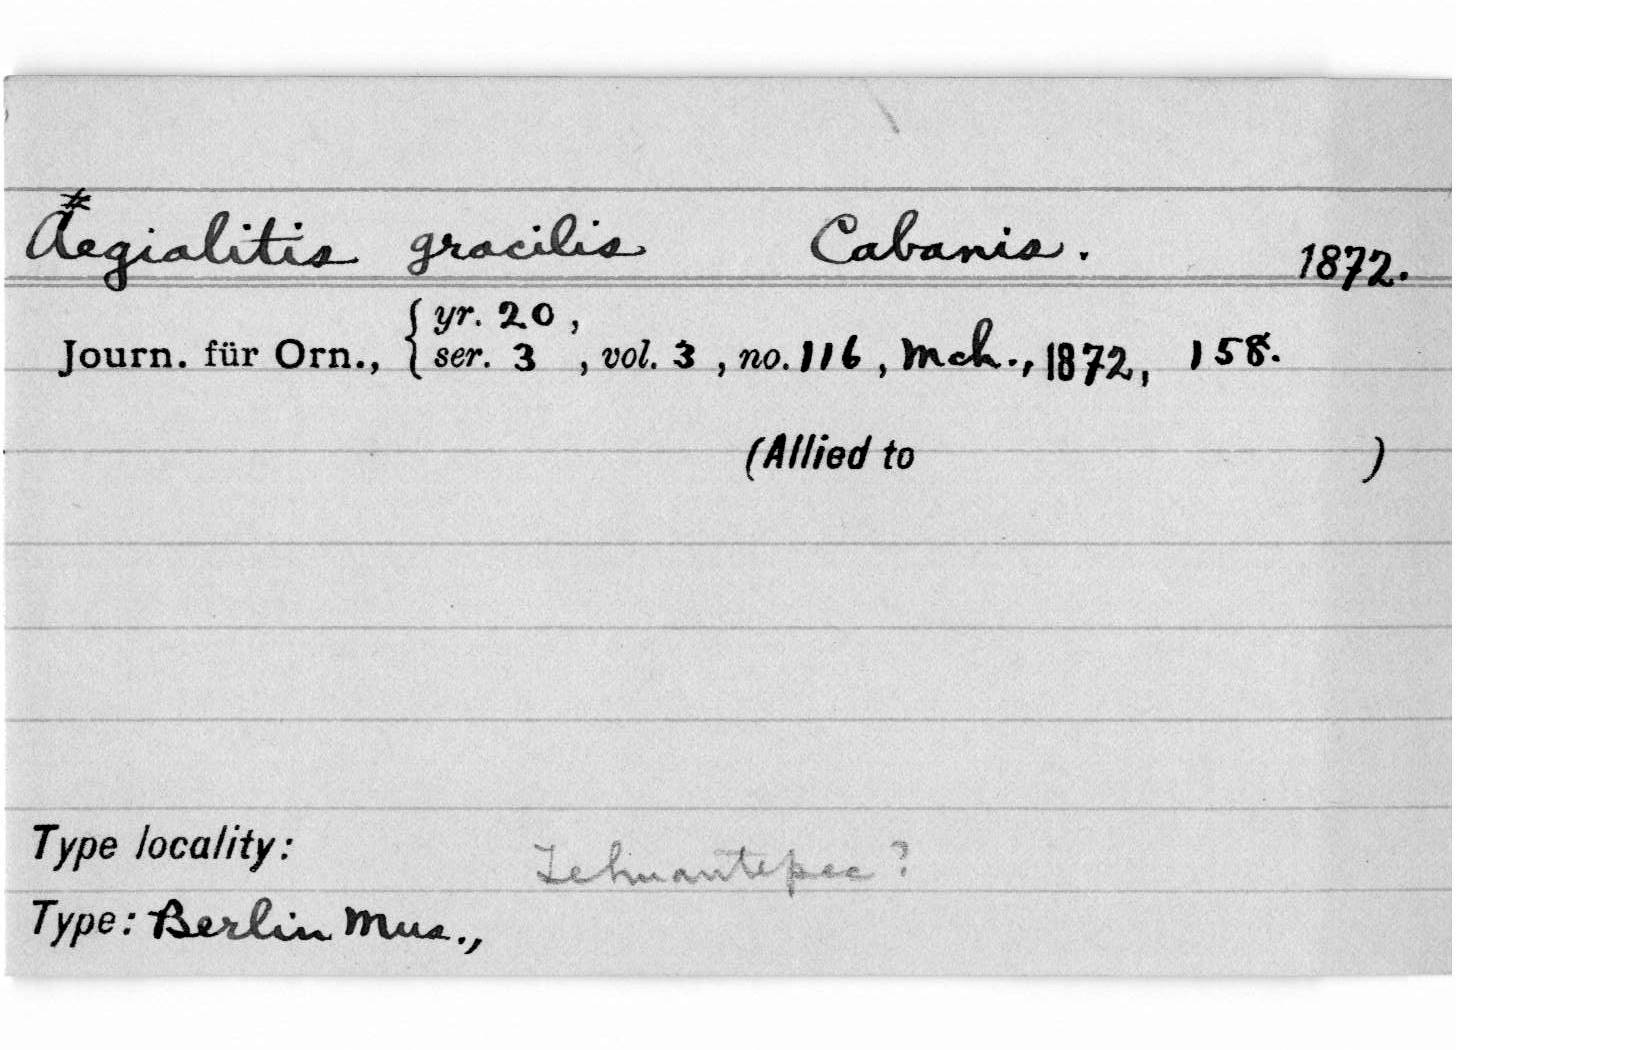 #
Aegialitis gracilis Cabanis. 1872.
Journ. für Orn., { yr. 20,
ser. 3, vol. 3, no. 116, Mch., 1872, 158.
(Allied to )
Type locality: Tehuantepec?
Type: Berlin Mus.,